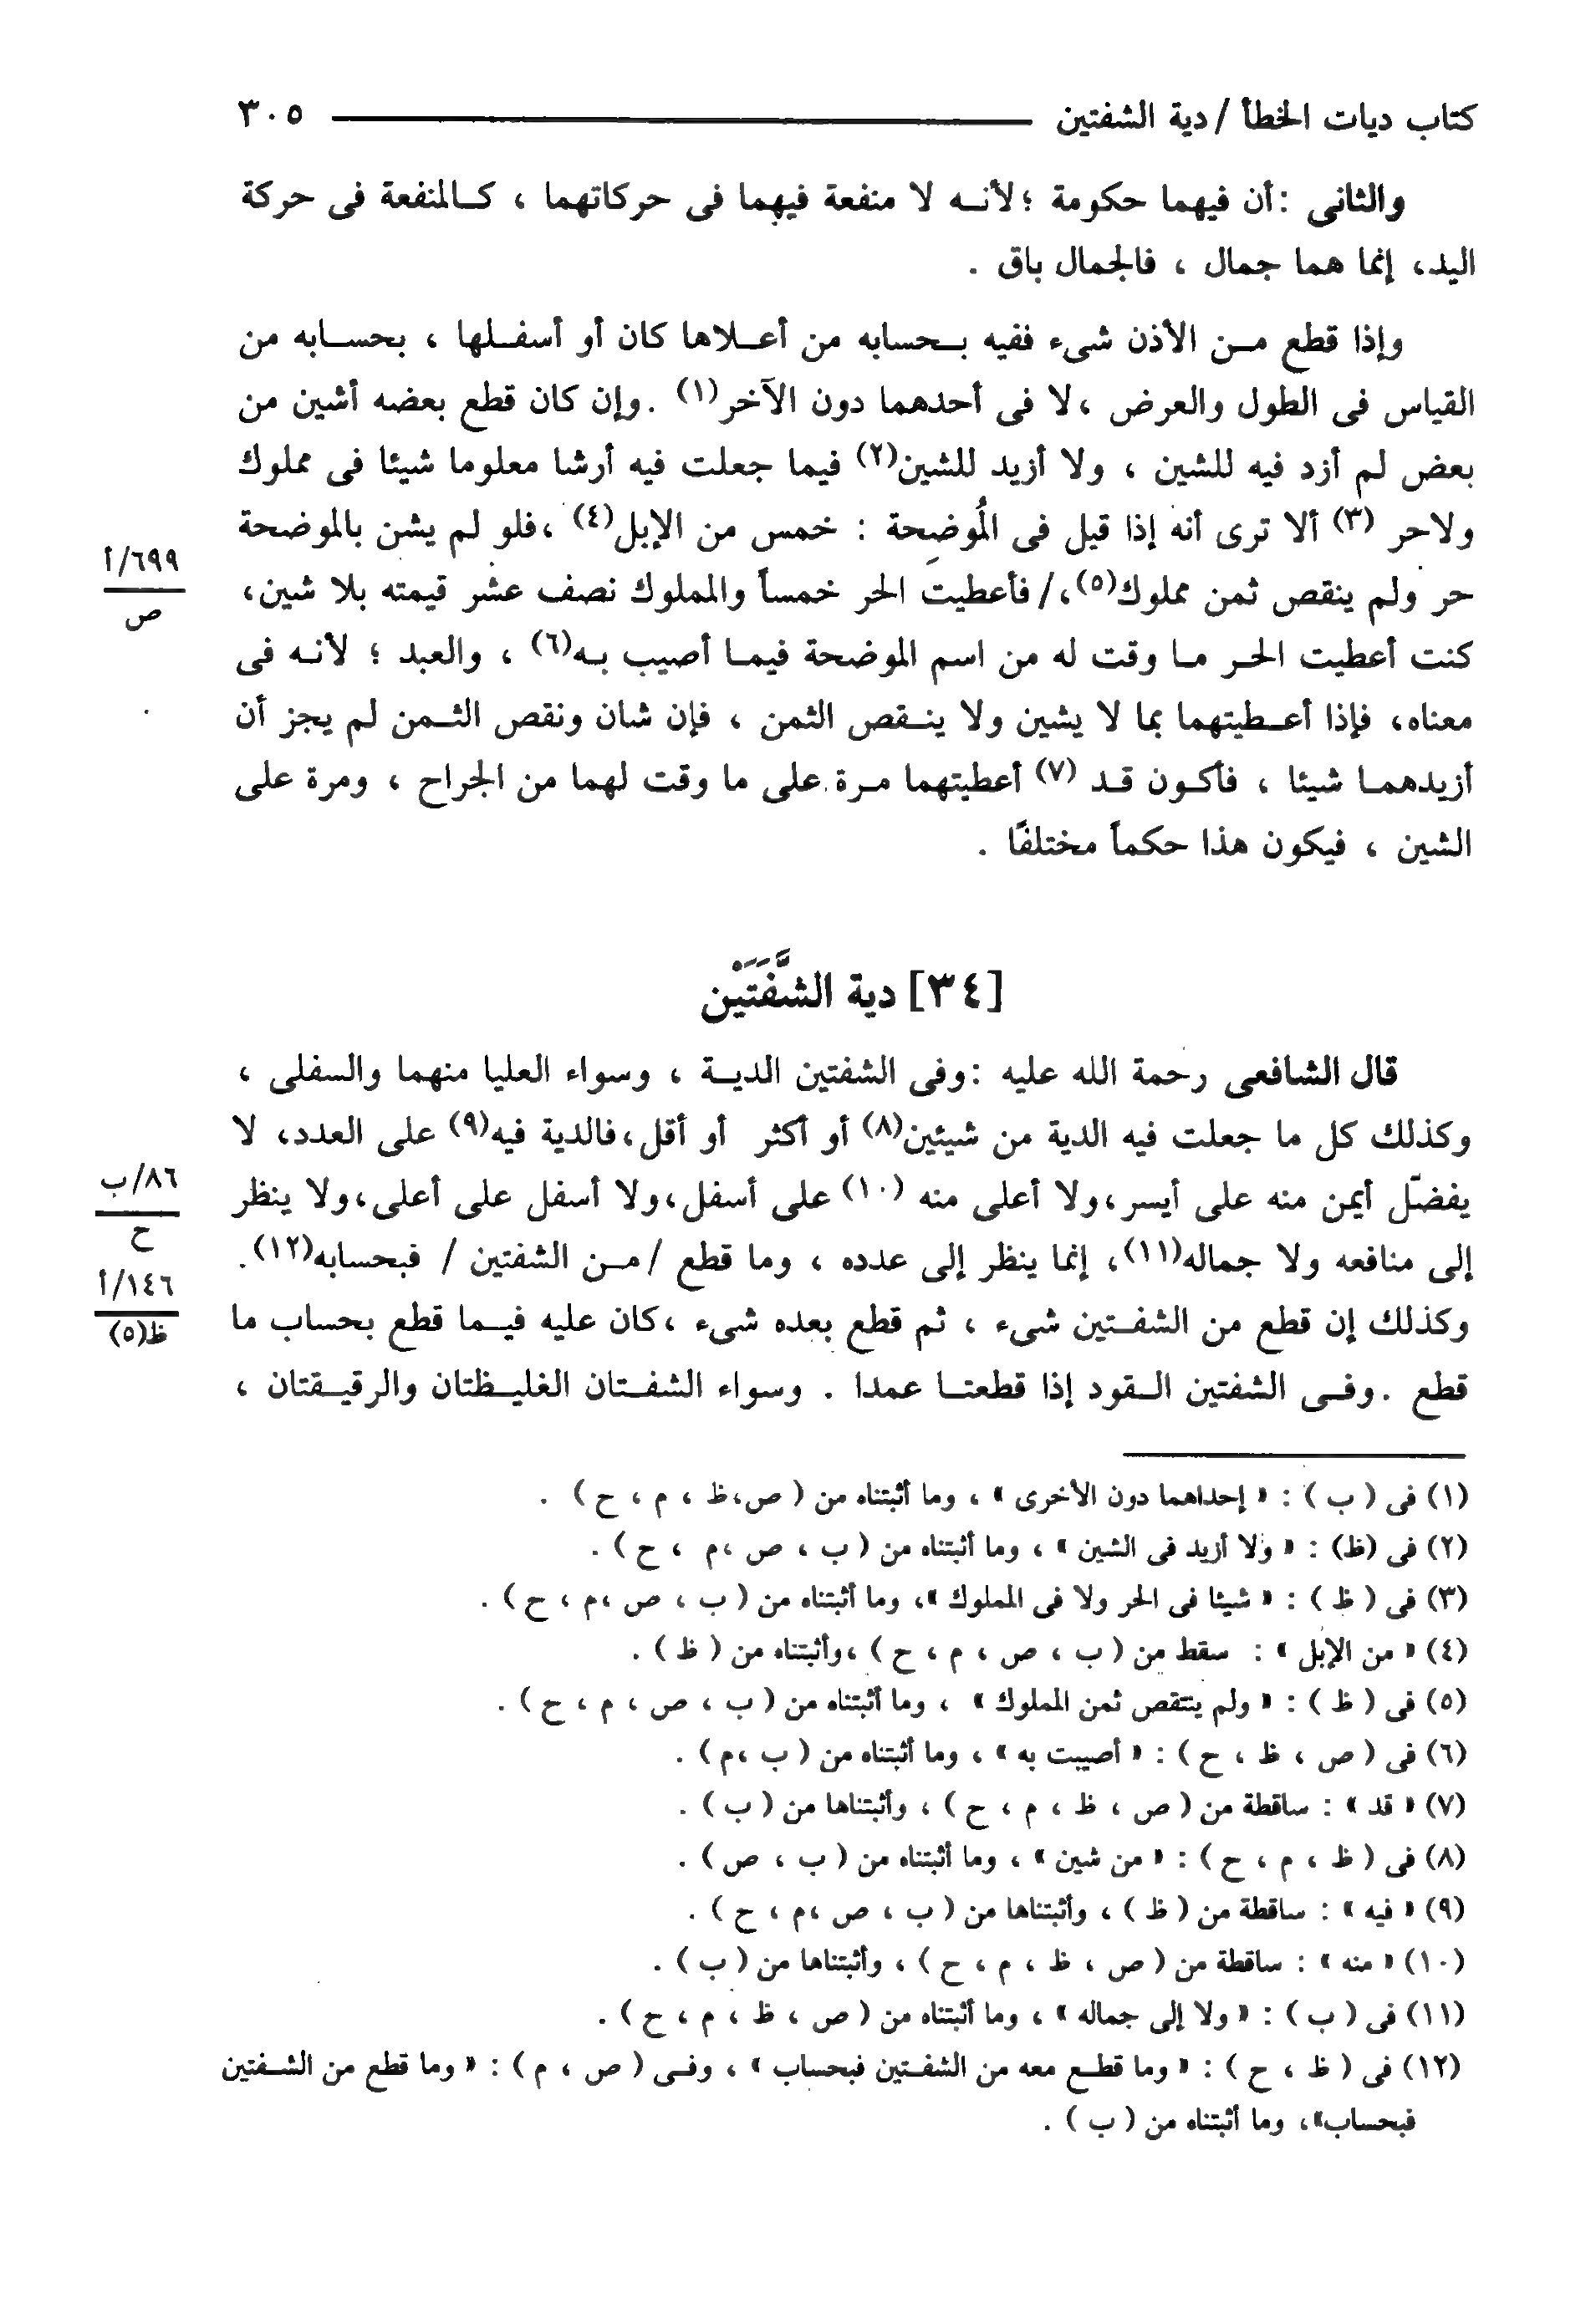 كتاب ديات الخطأ / دية الشفتين ٣٠٥
والثانى : أن فيهما حكومة ؛ لأنه لا منفعة فيهما فى حركاتهما ، كالمنفعة فى حركة
اليد، إنما هما جمال ، فالجمال باق .
وإذا قطع من الأذن شىء ففيه بحسابه من أعلاها كان أو أسفلها ، بحسابه من
القياس فى الطول والعرض ، لا فى أحدهما دون الآخر(١) . وإن كان قطع بعضه أشين من
بعض لم أزد فيه للشين ، ولا أزيد للشين(٢) فيما جعلت فيه أرشا معلوما شيئا فى مملوك
ولاحر (٣) ألا ترى أنه إذا قيل فى المُوضِحة : خمس من الإبل(٤) ، فلو لم يشن بالموضحة
حر ولم ينقص ثمن مملوك(٥)، / فأعطيت الحر خمساً والمملوك نصف عشر قيمته بلا شين،
كنت أعطيت الحر ما وقت له من اسم الموضحة فيما أصيب به(٦) ، والعبد ؛ لأنه فى
معناه، فإذا أعطيتهما بما لا يشين ولا ينقص الثمن ، فإن شان ونقص الثمن لم يجز أن
أزيدهما شيئا ، فأكون قد (٧) أعطيتهما مرة على ما وقت لهما من الجراح ، ومرة على
الشين ، فيكون هذا حكماً مختلفًا .
٦٩٩/أ
ص
[٣٤] دية الشَّفَتَيْن
قال الشافعى رحمة الله عليه : وفى الشفتين الدية ، وسواء العليا منهما والسفلى ،
وكذلك كل ما جعلت فيه الدية من شيئين(٨) أو أكثر أو أقل، فالدية فيه(٩) على العدد، لا
يفضّل أيمن منه على أيسر، ولا أعلى منه (١٠) على أسفل، ولا أسفل على أعلى، ولا ينظر
إلى منافعه ولا جماله(١١)، إنما ينظر إلى عدده ، وما قطع / من الشفتين / فبحسابه(١٢).
وكذلك إن قطع من الشفتين شىء ، ثم قطع بعده شىء ، كان عليه فيما قطع بحساب ما
قطع . وفى الشفتين القود إذا قطعتا عمدا . وسواء الشفتان الغليظتان والرقيقتان ،
٨٦/ب
ح
١٤٦/أ
ظ(٥)
(١) فى ( ب ) : « إحداهما دون الأخرى » ، وما أثبتناه من ( ص، ظ ، م ، ح ) .
(٢) فى (ظ) : « ولا أزيد فى الشين » ، وما أثبتناه من ( ب ، ص ، م ، ح ) .
(٣) فى ( ظ ) : « شيئا فى الحر ولا فى المملوك »، وما أثبتناه من ( ب ، ص ، م ، ح ) .
(٤) « من الإبل » : سقط من ( ب ، ص ، م ، ح ) ، وأثبتناه من ( ظ ) .
(٥) فى ( ظ ) : « ولم ينتقص ثمن المملوك » ، وما أثبتناه من ( ب ، ص ، م ، ح ) .
(٦) فى ( ص ، ظ ، ح ) : « أصيبت به » ، وما أثبتناه من ( ب ، م) .
(٧) « قد » : ساقطة من ( ص ، ظ ، م ، ح ) ، وأثبتناها من ( ب ) .
(٨) فى ( ظ ، م ، ح ) : « من شين » ، وما أثبتناه من ( ب ، ص ) .
(٩) « فيه » : ساقطة من ( ظ ) ، وأثبتناها من ( ب ، ص ، م ، ح ) .
(١٠) « منه » : ساقطة من ( ص ، ظ ، م ، ح ) ، وأثبتناها من ( ب ) .
(١١) فى ( ب ) : « ولا إلى جماله » ، وما أثبتناه من ( ص ، ظ ، م ، ح ) .
(١٢) فى ( ظ ، ح ) : « وما قطع معه من الشفتين فبحساب » ، وفى ( ص ، م ) : « وما قطع من الشفتين
فبحساب»، وما أثبتناه من ( ب ) .